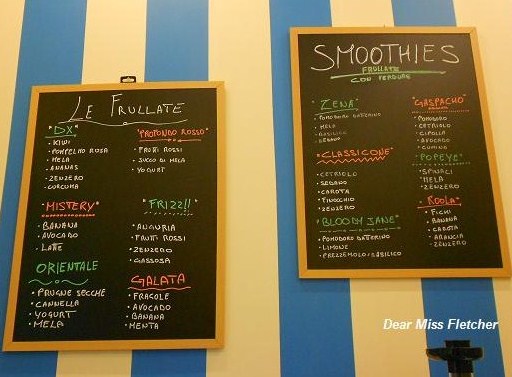 LE FRULLATE
"DX"
• KIWI
• POMPELMO ROSA
• MELA
• ANANAS
• ZENZERO
• CURCUMA
"PROFONDO ROSSO"
• FRUTTI ROSSI
• SUCCO DI MELA
• YOGURT
"MISTERY"
• BANANA
• AVOCADO
• LATTE
"FRIZZ!!"
• ANGURIA
• FRUTTI ROSSI
• ZENZERO
• GASSOSA
ORIENTALE
• PRUGNE SECCHE
• CANNELLA
• YOGURT
• MELA
GALATA
• FRAGOLE
• AVOCADO
• BANANA
• MENTA
SMOOTHIES
FRULLATE
CON VERDURE
"ZENA"
• POMODORO DATTERINO
• MELA
• BASILICO
"CLASSICONE"
• CETRIOLO
• SEDANO
• CAROTA
• FINOCCHIO
• ZENZERO
"BLOODY JANE"
• POMODORO DATTERINO
• LIMONE
• PREZZEMOLO/BASILICO
"GASPACHO"
• POMODORO
• CETRIOLO
• CIPOLLA
• AVOCADO
• CUMINO
"POPEYE"
• SPINACI
• MELA
• ZENZERO
"KOOLA"
• FICHI
• BANANA
• CAROTA
• ARANCIA
• ZENZERO
Dear Miss Fletcher